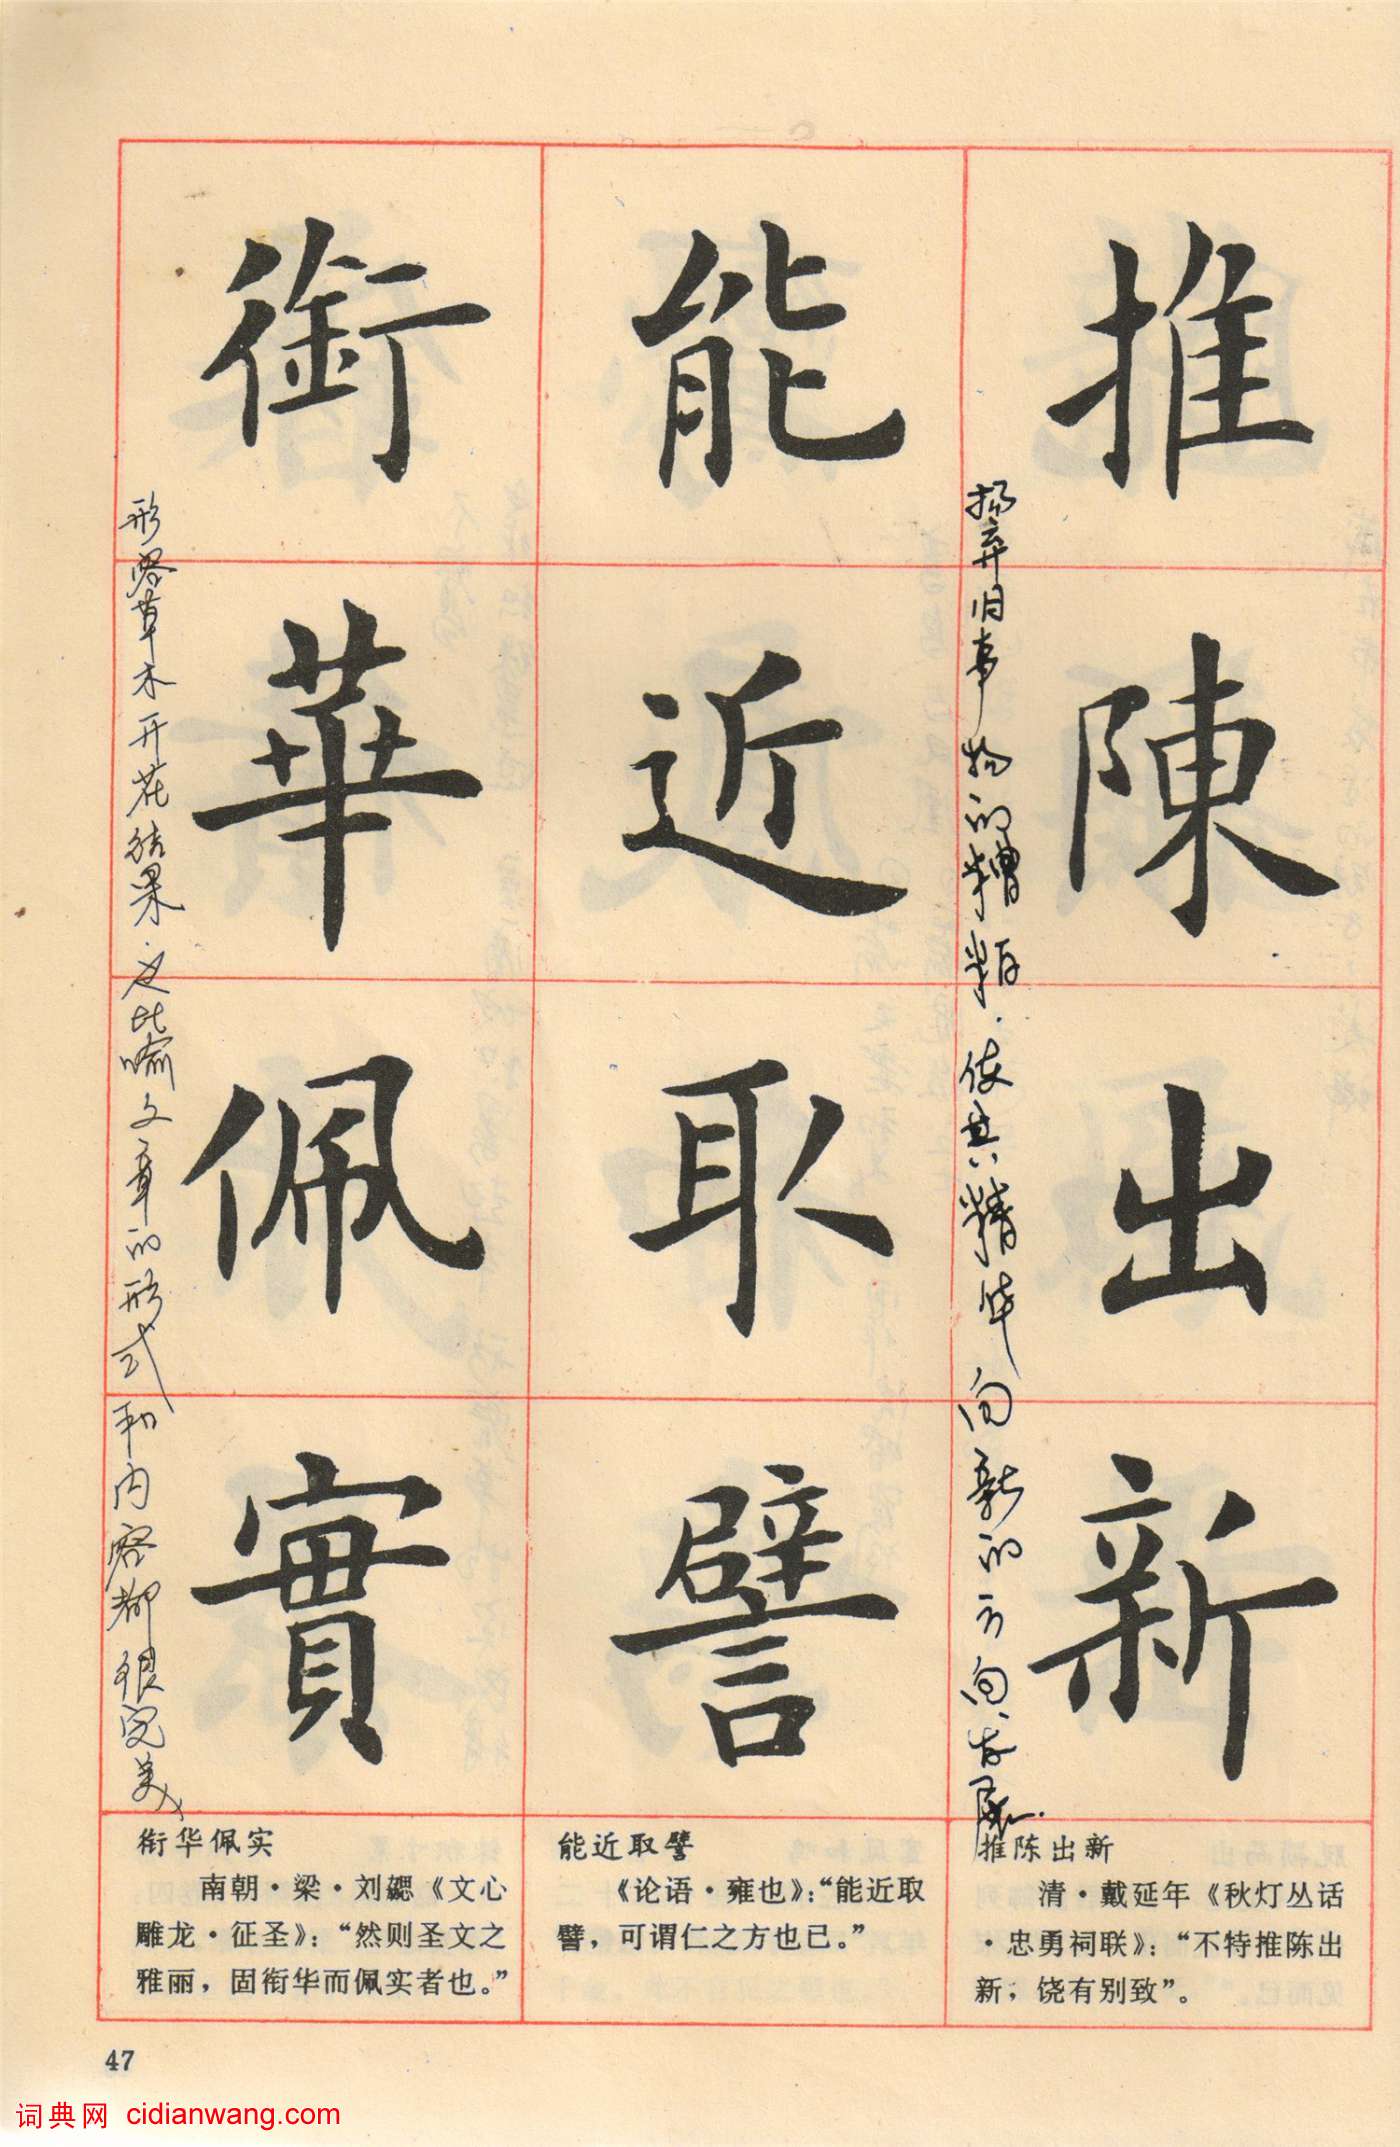 推陳出新
扬弃旧事物的糟粕.使其精华向新的方向发展.
能近取譬
銜華佩實
形容草木开花结果.比喻文章的形式和内容都很完美
推陈出新
清·戴延年《秋灯丛话
·忠勇祠联》：“不特推陈出
新，饶有别致”。
能近取譬
《论语·雍也》：“能近取
譬，可谓仁之方也已。”
衔华佩实
南朝·梁·刘勰《文心
雕龙·征圣》：“然则圣文之
雅丽，固衔华而佩实者也。”
47
词典网 cidianwang.com